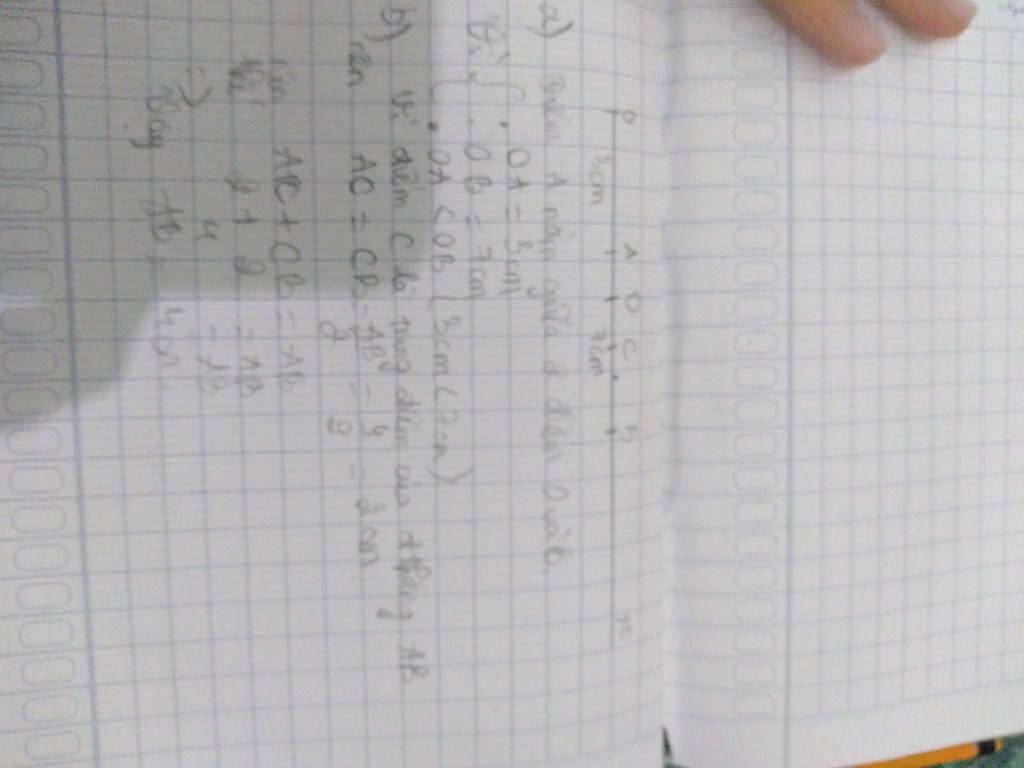 O A D C B x
3cm 7cm
a) Điểm A nằm giữa 2 điểm O và B
Vì OA = 3cm
OB = 7cm
OA < OB (3cm < 7cm)
b) Vì điểm C là trung điểm của đthẳng AB
nên AC = CB = AB/2 = 4/2 = 2cm
AC + CB = AB
2 + 2 = AB
=> 4 = AB
Vậy AB = 4cm